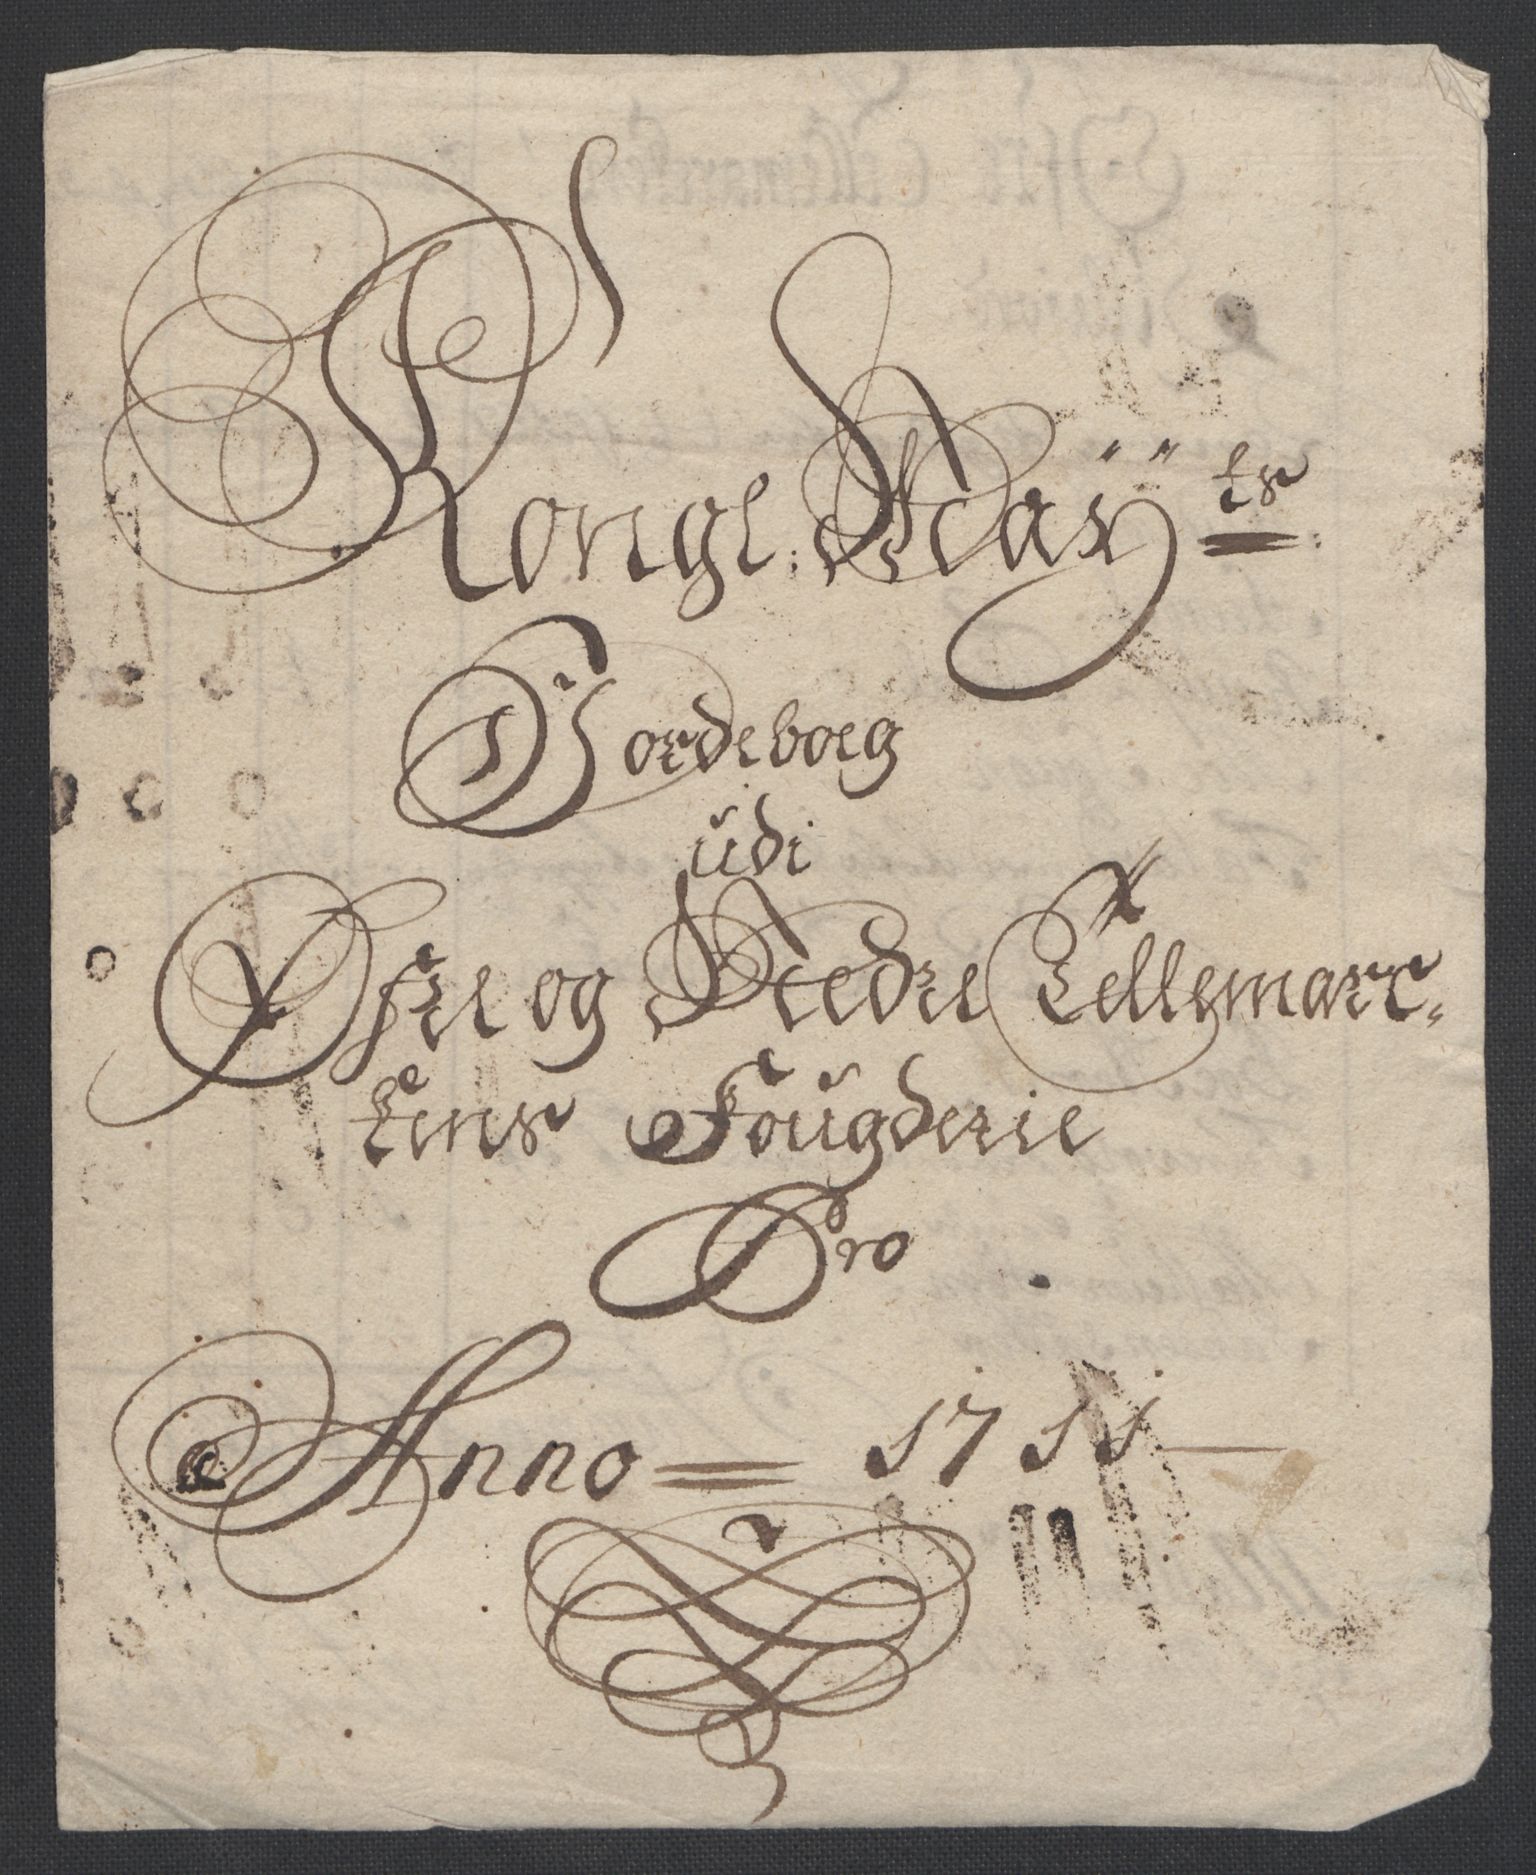 Kongl: Maÿ ts
Jordeboeg
udi
Øfre og Nedre Tellemarc-
kens Fougderie
Pro
Anno = 1711